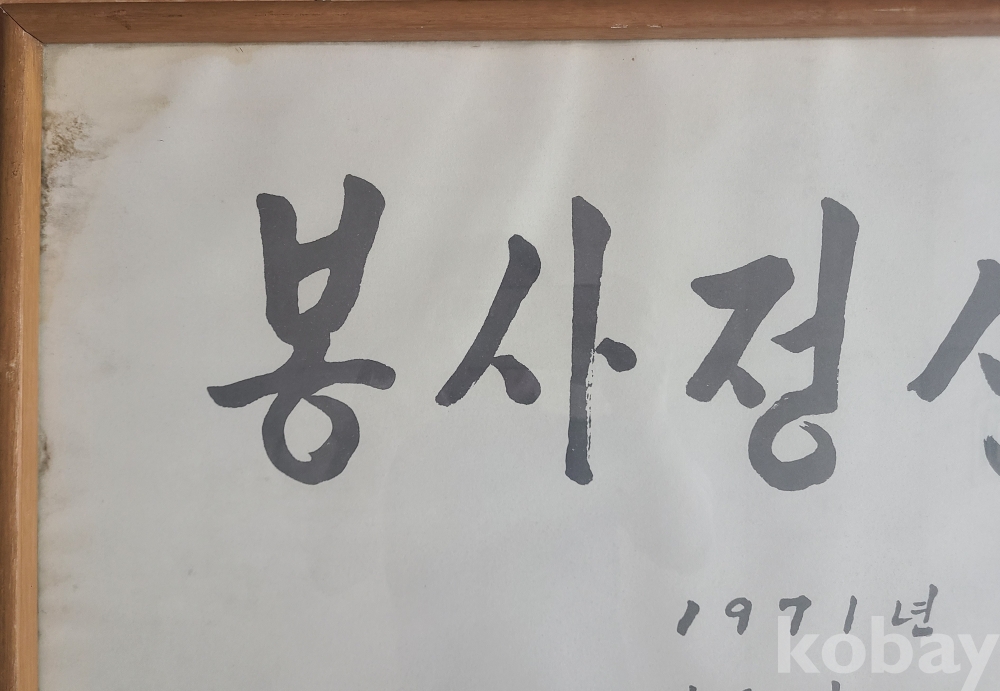 봉사정
1971년
kobay